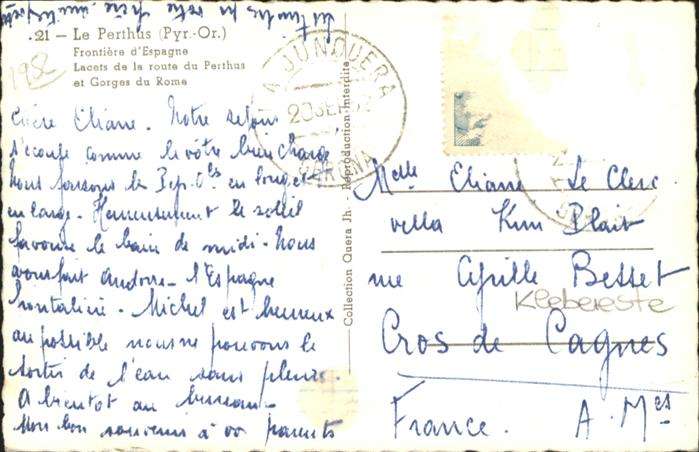 21 - Le Perthus (Pyr.-Or.)
Frontière d'Espagne
Lacets de la route du Perthus
et Gorges du Rome
1952
LA JUNQUERA
20 SEP 52
GERONA
Collection Quera Jh. - Reproduction Interdite
Chère Eliane. Notre séjour
s'écoule comme le vôtre bien chargé
nous faisons les Pyr. Oles en long et
en large. Heureusement le soleil
favorise le bain de midi. Nous
avons fait Andorre - l'Espagne
frontalière. Michel est heureux
au possible nous ne pouvons le
sortir de l'eau sans pleurs.
A bientôt au bureau.
Mon bon souvenir à vos parents
Melle Eliane Le Clerc
villa Kim Plait
rue Cyrille Besset
Klebereste
Cros de Cagnes
France. A. Mes